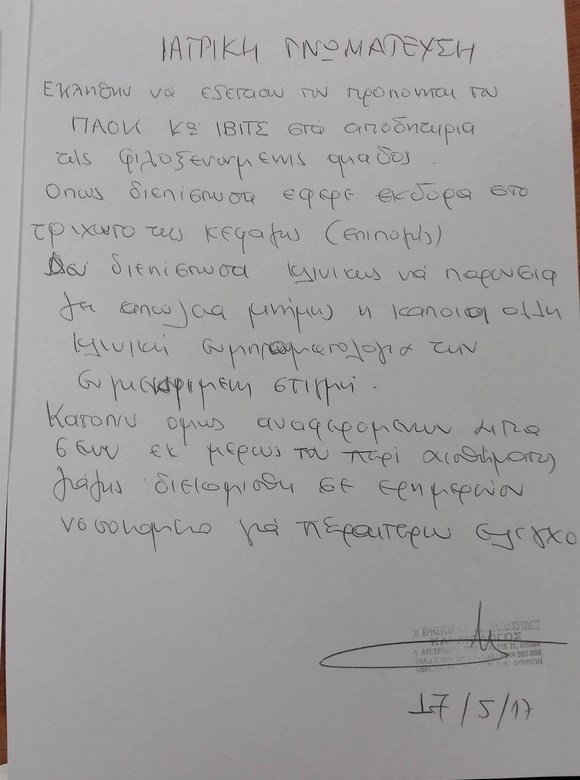 ΙΑΤΡΙΚΗ ΓΝΩΜΑΤΕΥΣΗ
Εκληθην να εξετασω τον προπονητη του
ΠΑΟΚ Κο ΙΒΙΤΣ στα αποδητηρια
της φιλοξενουμενης ομαδος.
Οπως διεπιστωσα εφερε εκδορα στο
τριχωτο της κεφαλης (επιπολης)
Δεν διεπιστωσα κλινικως να παρουσια
ζει απωλεια μνημης η καποια αλλη
κλινικη συμπτωματολογια την
συγκεκριμενη στιγμη.
Κατοπιν ομως αναφερομενων
εκ μερους του περι αισθηματος
ζαλης διεκομισθη σε εφημερευον
νοσοκομειο για περαιτερω ελεγχο
17/5/17